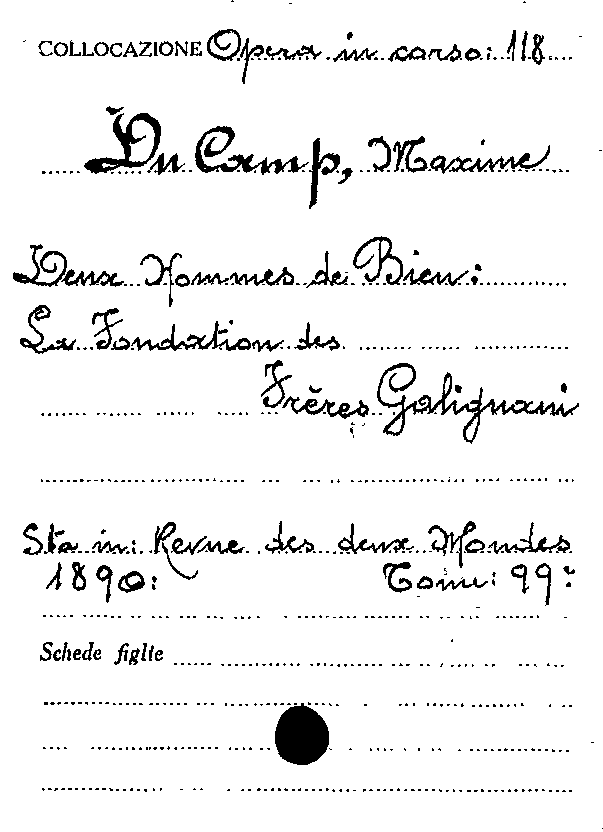 COLLOCAZIONE Opera in corso: 118
Du Camp, Maxime
Deux Hommes de Bien:
La Fondation des
Frères Galignani
Sta in: Revue des deux Mondes
1890: Tome: 99:
Schede figlie